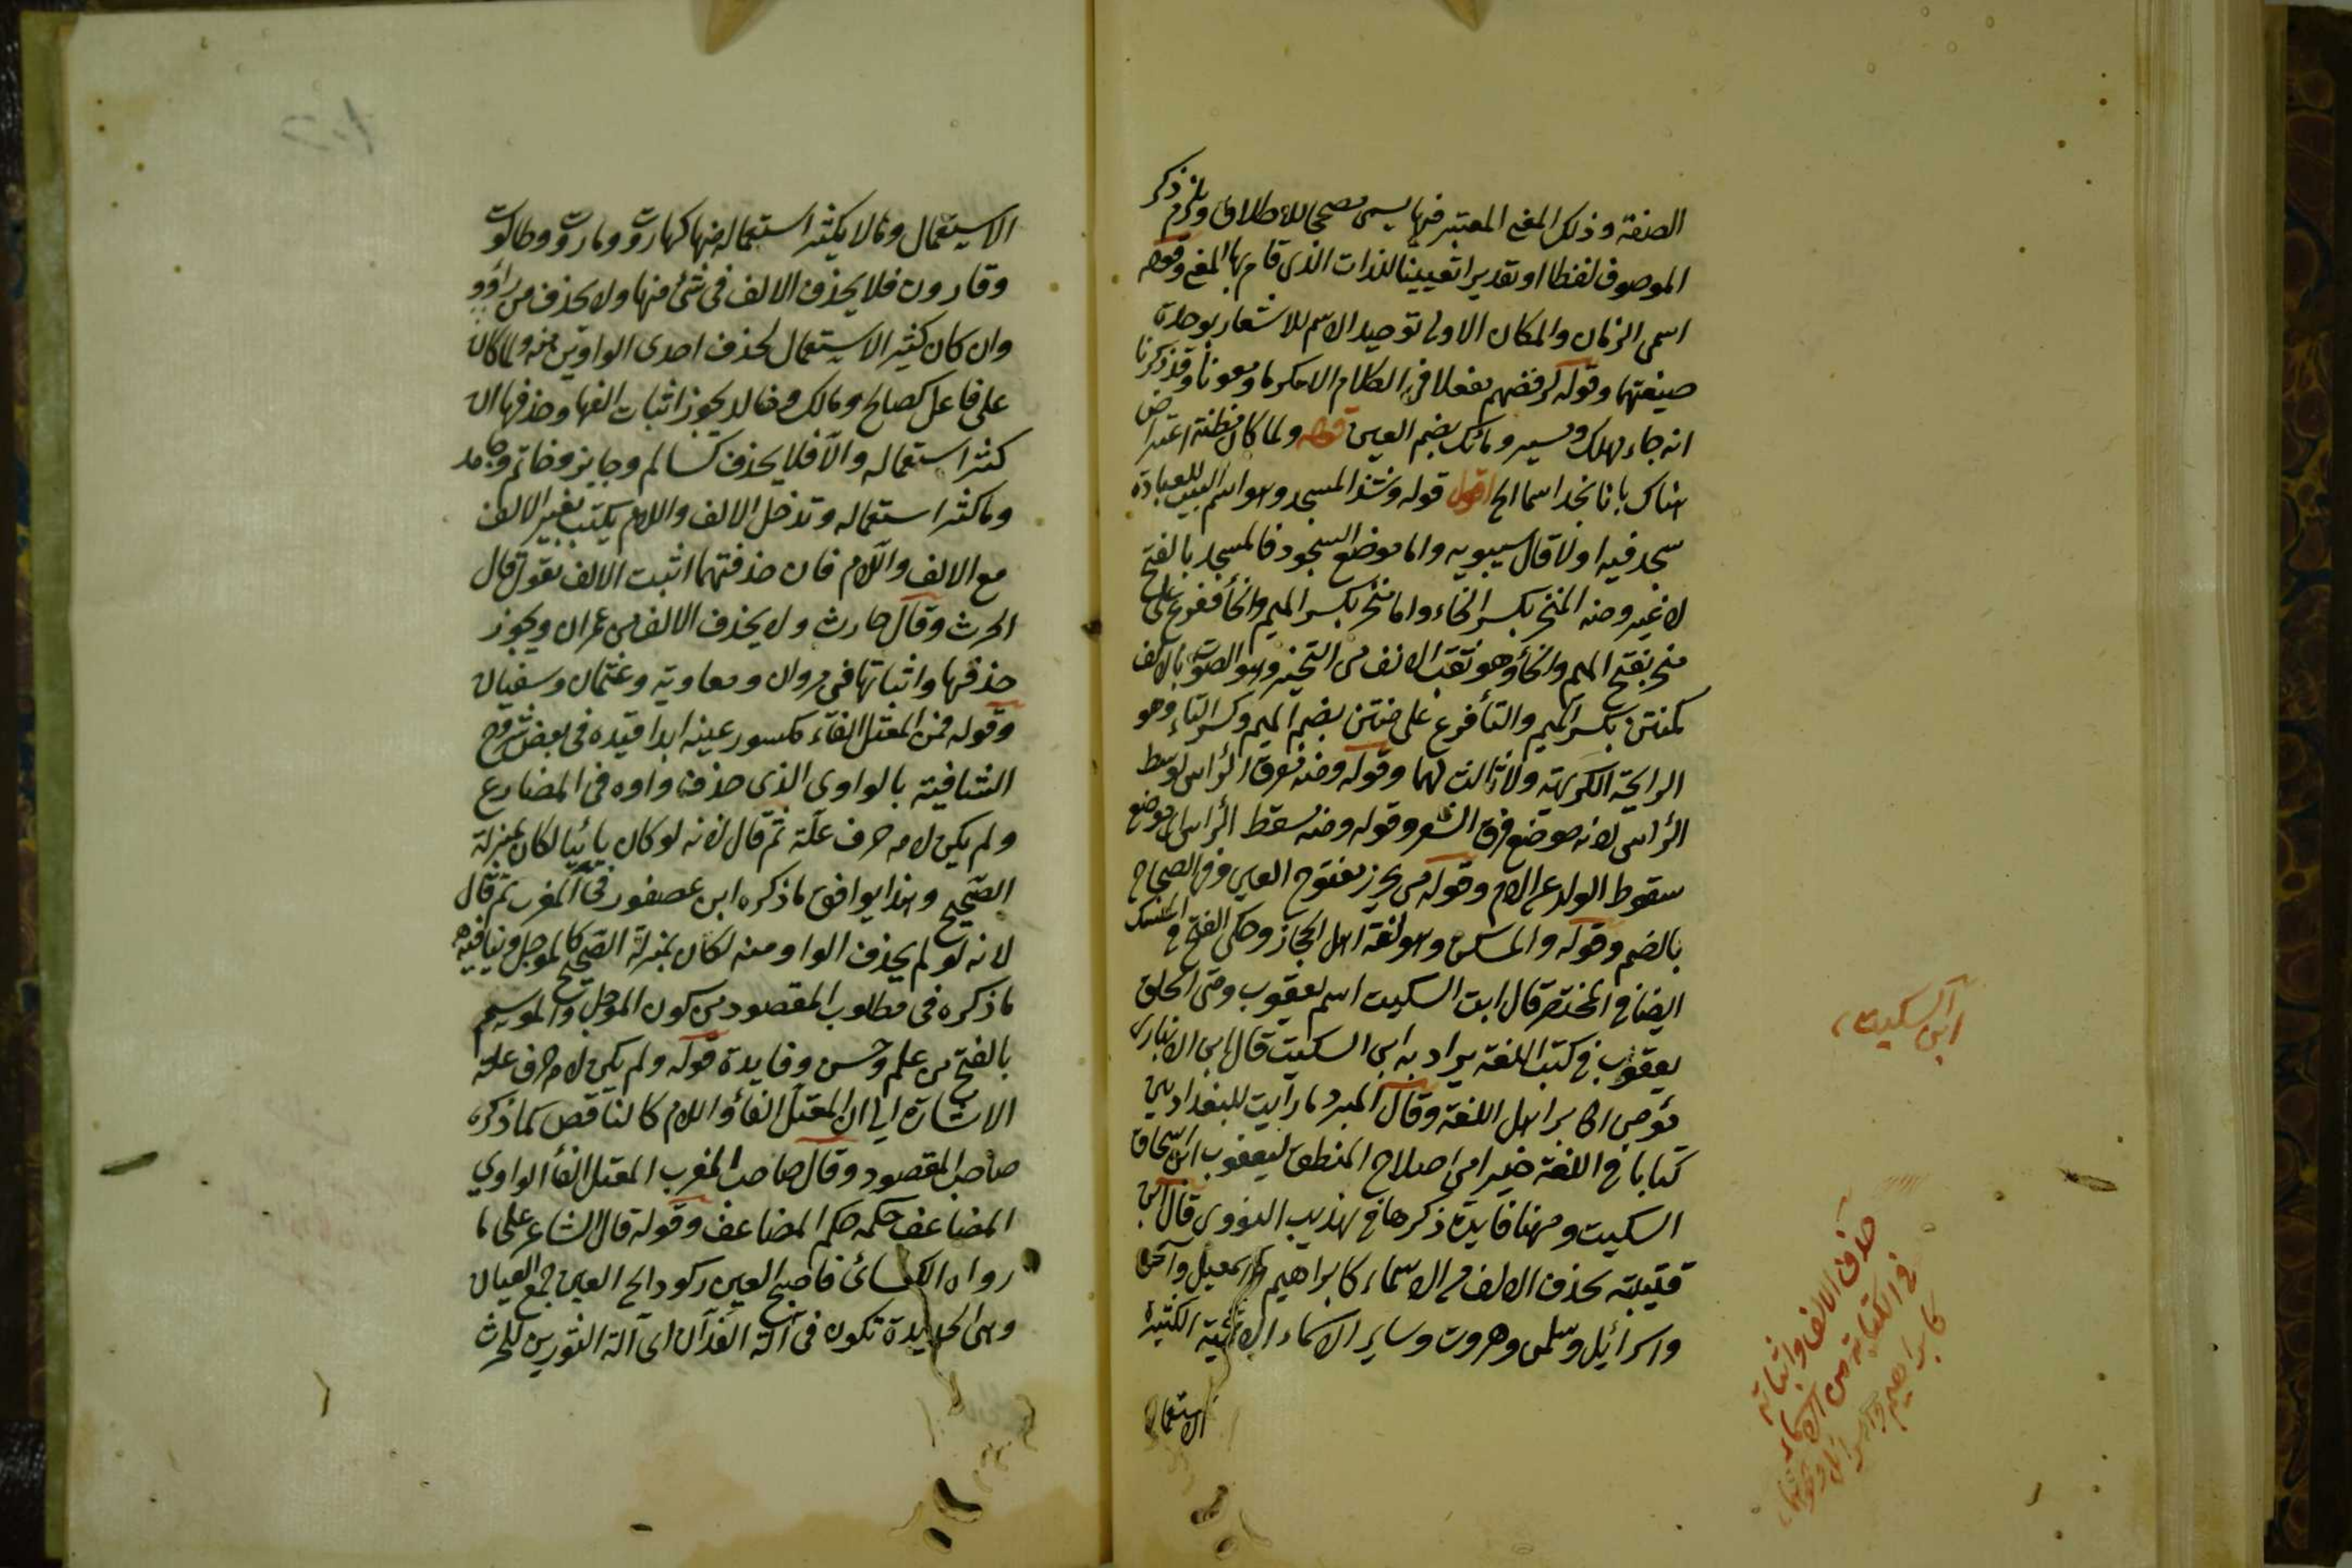 الصفة وذلك المعنى المعتبر فيها يسمى مصححا للاطلاق ويلزم ذكر
الموصوف لفظا او تقديرا تعيينا للذات الذى قام بها المعنى وقوله
اسمى الزمان والمكان الاولى توحيد الاسم للاشعار بوحدة
صيغتهما وقوله لرفضهم مفعلا فى الكلام الا مكرما ومعونا وقد ذكرنا
انه جاء مهلك وميسر ومالك بضم العين قوله ولما كان مظنة اعتراض
هناك بانا نجد اسما الخ اقول قوله وشذ المسجد وهو اسم البيت للعبادة
سجد فيه اولا قال سيبويه واما موضع السجود فالمسجد بالفتح
لا غير ومنه المنخر بكسر الخاء واما منخر بكسر الميم والخأ ففرع على
منخر بفتح الميم والخأ وهو ثقب الانف من النخير وهو الصوت بالانف
كمنتن بكسر الميم والتأ فرع على منتن بضم الميم وكسر التاء وهو
الرايحة الكريهة ولا ثالث لهما وقوله ومنه مفرق الرأس لوسط
الرأس لانه موضع فرق الشعر وقوله ومنه مسقط الرأس لموضع
سقوط الولد عن الام وقوله من يحرز مفتوح العين وفى الصحاح
بالضم وقوله والمسكن وهو لغة اهل الحجاز وحكى الفتح فى المنسك
ايضا فى المختصر قال ابن السكيت اسم يعقوب ومتى اطلق
يعقوب فى كتب اللغة يراد به ابن السكيت قال ابن الانبارى
هو من اكابر اهل اللغة وقال المبرد ما رأيت للبغداديين
كتابا فى اللغة خيرا من اصلاح المنطق ليعقوب ابن اسحاق
السكيت وههنا فايدة ذكرها فى تهذيب النووى قال ابن
قتيبة تحذف الالف من الاسماء كابراهيم واسمعيل واسحق
واسرائيل وسلمن وهرون وساير الاسماء الكثيرة
الاستعمال
ابن السكيت
حذف الالف واثباته
فى الكتابة من الاسماء
كابراهيم واسرائيل ونحوهما
الاستعمال ومالا يكثر استعماله منها كهاروت وماروت وطالوت
وقارون فلا يحذف الالف فى شئ منها ولا يحذف من داوود
وان كان كثير الاستعمال لحذف احدى الواوين منه وما كان
على فاعل كصالح ومالك وخالد يجوز اثبات الفها وحذفها ان
كثر استعماله والا فلا يحذف كسالم وجايز وخاتم وحامد
وما كثر استعماله وتدخل الالف واللام يكتب بغير الالف
مع الالف واللام فان حذفتهما اثبت الالف تقول قال
الحرث وقال حارث ولا يحذف الالف من عمران ويجوز
حذفها واثباتها فى مروان ومعاوية وعثمان وسفيان
وقوله فمن المعتل الفاء مكسور عينه ابدا قيده فى بعض شروح
الشافية بالواوى الذى حذفت واوه فى المضارع
ولم يكن لامه حرف علة ثم قال لانه لو كان يائيا لكان بمنزلة
الصحيح وهذا يوافق ما ذكره ابن عصفور فى المقرب ثم قال
لانه لو لم يحذف الواو منه لكان بمنزلة الصحيح كالموجل وينافيه
ما ذكره فى مطلوب المقصود من كون الموجل والموسم
بالفتح من علم وحسن وفايدة قوله ولم يكن لامه حرف علة
الاشارة الى ان المعتل الفأ واللام كالناقص كما ذكره
صاحب المقصود وقال صاحب المغرب المعتل الفأ الواوي
المضاعف حكمه حكم المضاعف وقوله قال الشاعر على ما
رواه الكسائى فاصبح العين ركود الخ العين جمع العيان
وهى الحديدة تكون فى آلة الفدان اى آلة الثورين للحرث